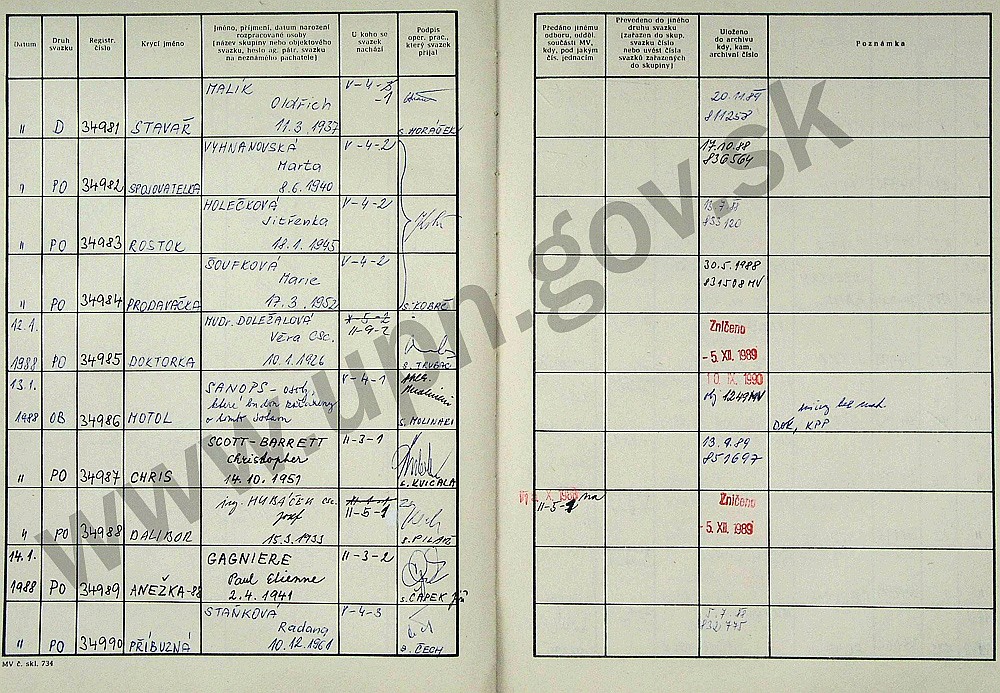 Datum
Druh
svazku
Registr.
číslo
Krycí jméno
Jméno, příjmení, datum narození
rozpracované osoby
(název skupiny nebo objektového
svazku, heslo ag. pátr. svazku
na neznámého pachatele)
U koho se
svazek
nachází
Podpis
oper. prac.,
který svazek
přijal
Předáno jinému
odboru, odděl.
součásti MV,
kdy, pod jakým
čís. jednacím
Převedeno do jiného
druhu svazku
(zařazen do skup.
svazku číslo
nebo uvést čísla
svazků zařazených
do skupiny)
Uloženo
do archivu
kdy, kam,
archivní číslo
Poznámka
MALÍK V-4-
Oldřich -1
" D 34981 STAVAŘ 11.3.1937 s. HORÁČEK
20.11.89
811258
VYHNANOVSKÁ V-4-2
Marta
" PO 34982 SPOJOVATELKA 8.6.1940
17.10.88
836564
HOLEČKOVÁ V-4-2
Jitřenka
" PO 34983 ROSTOK 18.1.1945
13.7.88
833120
ŠOUFKOVÁ V-4-2
Marie
" PO 34984 PRODAVAČKA 17.3.1952 s. KOBRČ
30.5.1988
831508 MV
12.1. MUDr. DOLEŽALOVÁ II-9-2
Věra CSc.
1988 PO 34985 DOKTORKA 10.1.1926 s. TRUBAČ
Zničeno
-5. XII. 1989
13.1. SANOPS - osob, V-4-1
které
1988 OB 34986 MOTOL s. MOLINARI
10. IX. 1990
obj 1249 MV
DOK, KPP
SCOTT-BARRETT II-3-1
Christopher
" PO 34987 CHRIS 14.10.1951 s. KVIČALA
13.9.89
851697
ing. HUBÁČEK CSc.
Josef II-5-1
" PO 34988 DALIBOR 15.3.1933 s. PILAŘ
na
II-5-
Zničeno
-5. XII. 1989
14.1. GAGNIERE II-3-2
Paul Etienne
1988 PO 34989 ANEŽKA-88 2.4.1941 s. ČAPEK Jiří
STAŇKOVÁ V-4-3
Radana
" PO 34990 PŘÍBUZNÁ 10.12.1961 s. ČECH
5.7.88
832775
MV č. skl. 734
www.upn.gov.sk